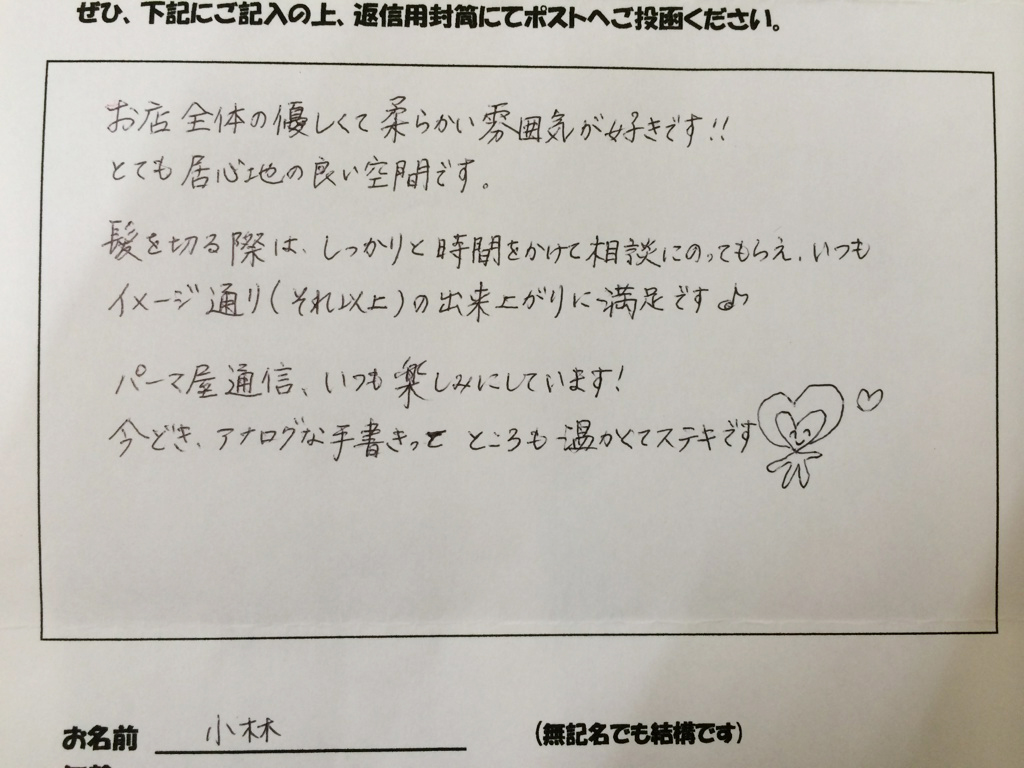 ぜひ、下記にご記入の上、返信用封筒にてポストへご投函ください。
お店全体の優しくて柔らかい雰囲気が好きです!!
とても居心地の良い空間です。
髪を切る際は、しっかりと時間をかけて相談にのってもらえ、いつも
イメージ通り(それ以上)の出来上がりに満足です♪
パーマ屋通信、いつも楽しみにしています!
今どき、アナログな手書きって ところも温かくてステキです
お名前 小林 (無記名でも結構です)